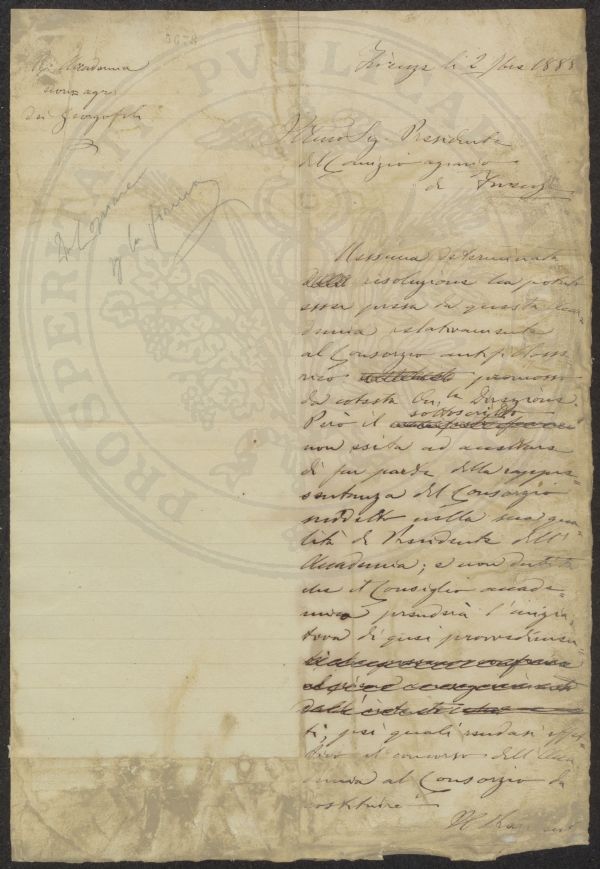 5678
R. Accademia
econ. agr.
dei Georgofili
Firenze li 2 9bre 1888
Illmo Sig. Presidente
del Comizio agrario
di Firenze
Nessuna determinata
risoluzione ha potuto
esser presa da questa Acca-
demia relativamente
al Consorzio antifilosse-
rico promosso
da cotesta On.la Direzione.
Però il sottoscritto
non esita ad accettare
di far parte della rappre-
sentanza del Consorzio
suddetto nella sua qua-
lità di Presidente dell'
Accademia; e non dubita
che il Consiglio accade-
mico prenderà l'inizia-
tiva di quei provvedimen-
ti, pei quali rendasi effet-
tivo il concorso dell'Acca-
demia al Consorzio da
costituire
PROSPERITATI PUBLICAE